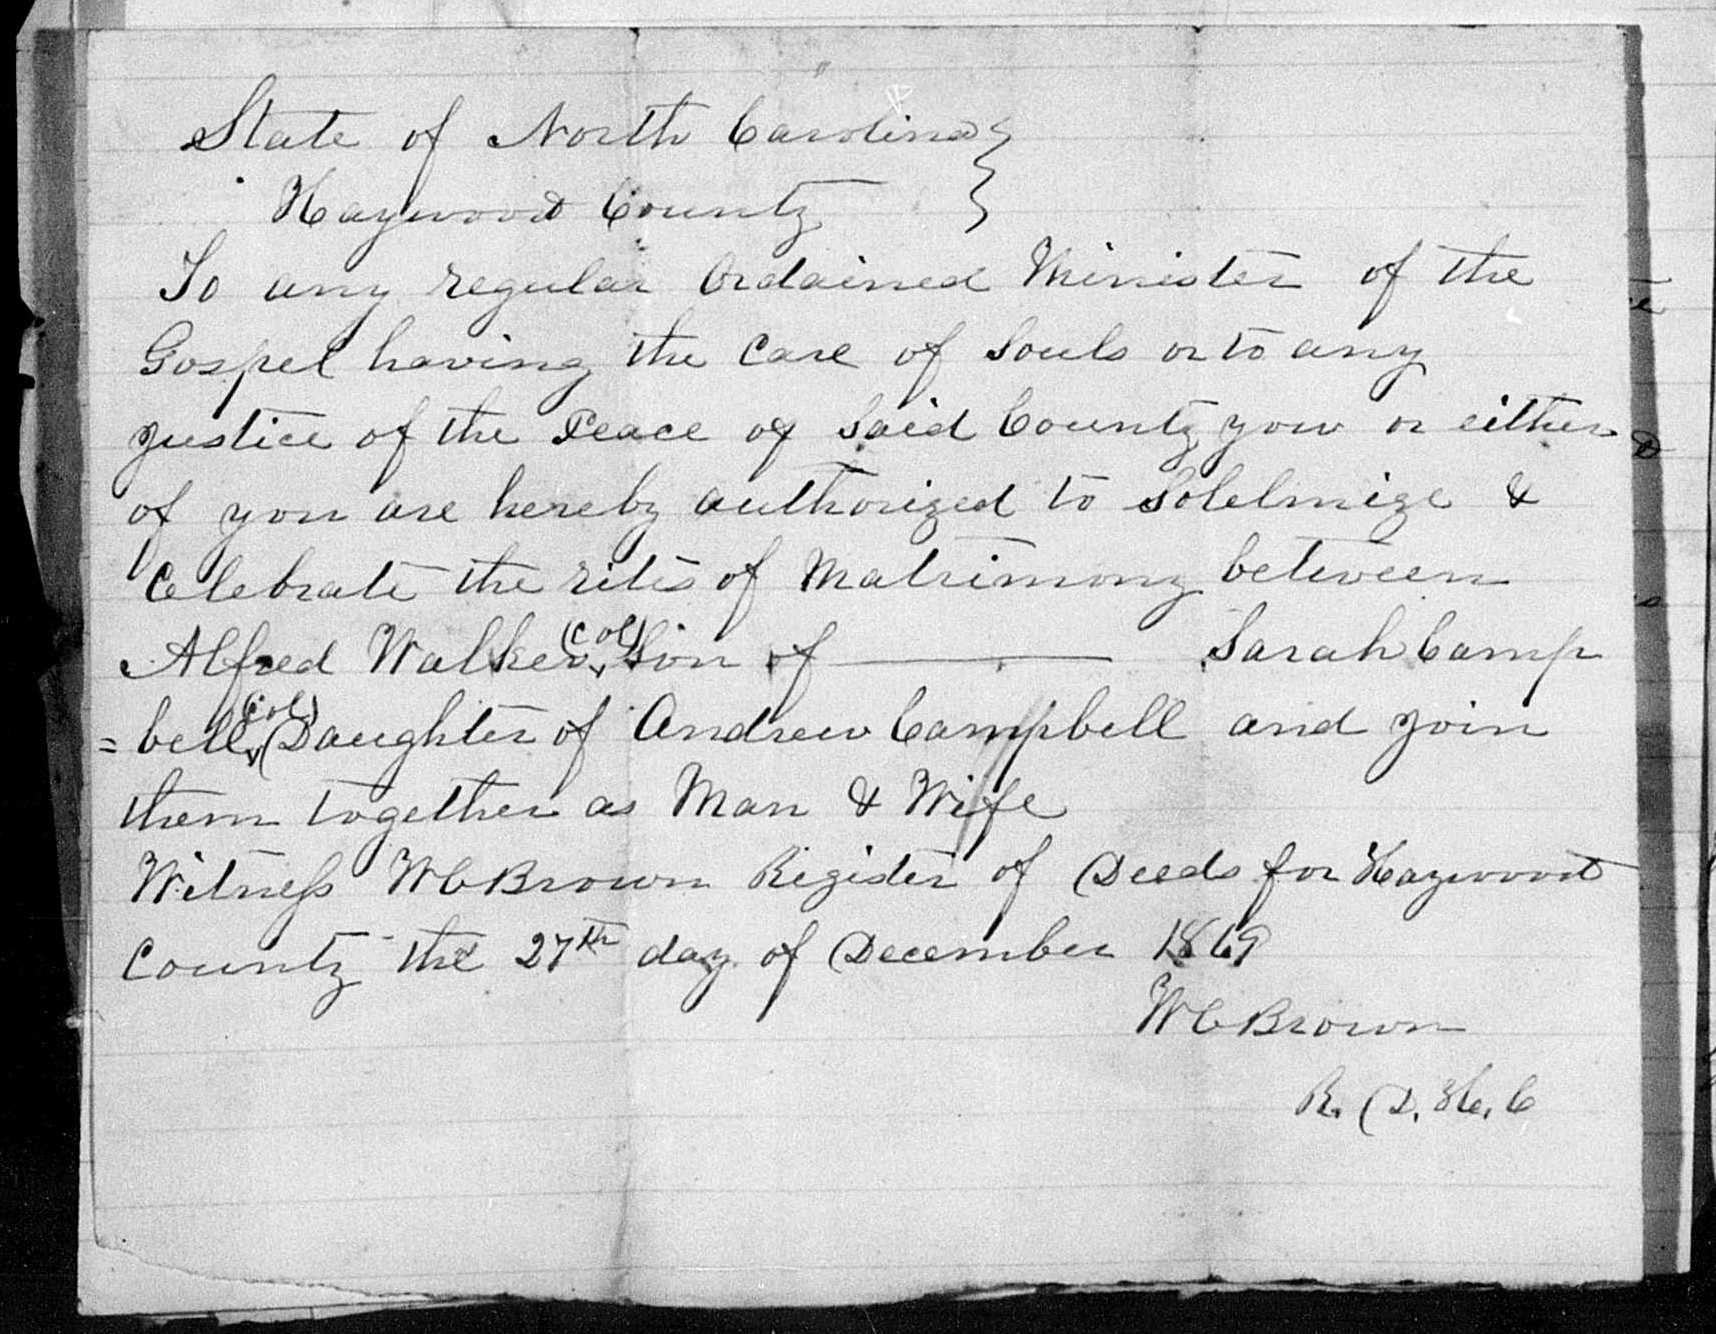 State of North Carolina }
Haywood County }
To any regular Ordained Minister of the
Gospel having the Care of Souls or to any
Justice of the Peace of Said County you or either
of you are hereby authorized to Solelmize &
Celebrate the rites of Matrimony between
Alfred Walker (Col) Son of ——— Sarah Camp
= bell (Col) Daughter of Andrew Campbell and join
them together as Man & Wife
Witness W C Brown Register of Deeds for Haywood
County the 27th day of December 1869
W C Brown
R. D. H. C